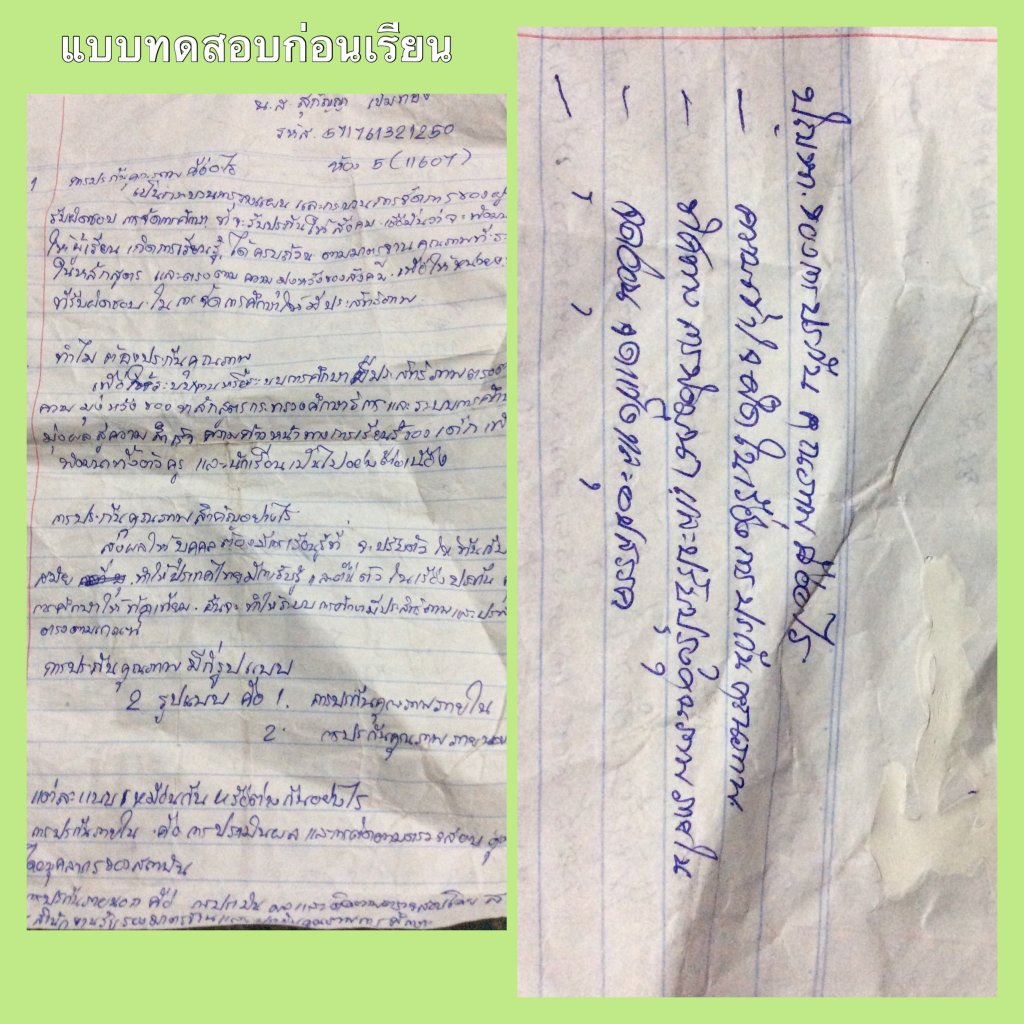 แบบทดสอบก่อนเรียน
น.ส. สุกัญญา
รหัส 571761321250
ห้อง 5 (11607)
1 การประกันคุณภาพ คืออะไร
เป็นกระบวนการวางแผน และกระบวนการจัดการของผู้
รับผิดชอบ การจัดการศึกษา ที่จะรับประกันให้สังคม เชื่อมั่นว่าจะ พัฒนา
ให้ผู้เรียน เกิดการเรียนรู้ ได้ ครบถ้วน ตามมาตรฐาน คุณภาพที่ระ
ในหลักสูตร และตรงตาม ความมุ่งหวังของสังคม เพื่อให้
ที่รับผิดชอบ ใน การ จัด การศึกษาให้มี ประสิทธิภาพ
ทำไม ต้องประกันคุณภาพ
เพื่อให้ระบบ การศึกษามีประสิทธิภาพตรงต
ความ มุ่งหวัง ของ หลักสูตรกระทรวงศึกษาธิการและ ระบบการศึกษา
มุ่งผลสู่ความสำเร็จ ความก้าวหน้าทางการเรียนรู้ของ เด็ก เพื่
พัฒนาทั้งตัวครู และนักเรียนเป็นไปอย่างต่อเนื่อง
การประกันคุณภาพ สำคัญอย่างไร
ส่งผลให้บุคคล ต้องมีการเรียนรู้ที่ จะปรับตัว ให้ ทันกับ
สมัย ทำให้ประเทศไทยมีการรับรู้ และตื่นตัว ในเรื่องประกัน
การศึกษาให้ทัดเทียม อันจะ ทำให้ระบบการศึกษามีประสิทธิภาพและ
ตรงตามเกณฑ์
การประกันคุณภาพ มีกี่รูปแบบ
2 รูปแบบ คือ 1. การประกันคุณภาพภายใน
2. การประกันคุณภาพภายนอก
แต่ละแบบ เหมือนกัน หรือต่างกันอย่างไร
การประกันภายใน คือ การประเมินผล และการติดตามตรวจสอบ คุณ
โดยบุคลากรของสถาบัน
การประกันภายนอก คือ การประเมินผลและติดตามตรวจสอบโดย ส
สำนักงานรับรองมาตรฐานและประเมินคุณภาพการศึกษา
ปัญหา. ของการประกัน คุณภาพ คืออะไร
- ความเข้าใจผิด ในเรื่อง การ ประกัน คุณภาพ
- ทิศทาง การพัฒนา และปรับปรุงคุณภาพ ภายใน
- จุดอ่อน จุดแข็ง และอุปสรรค
-